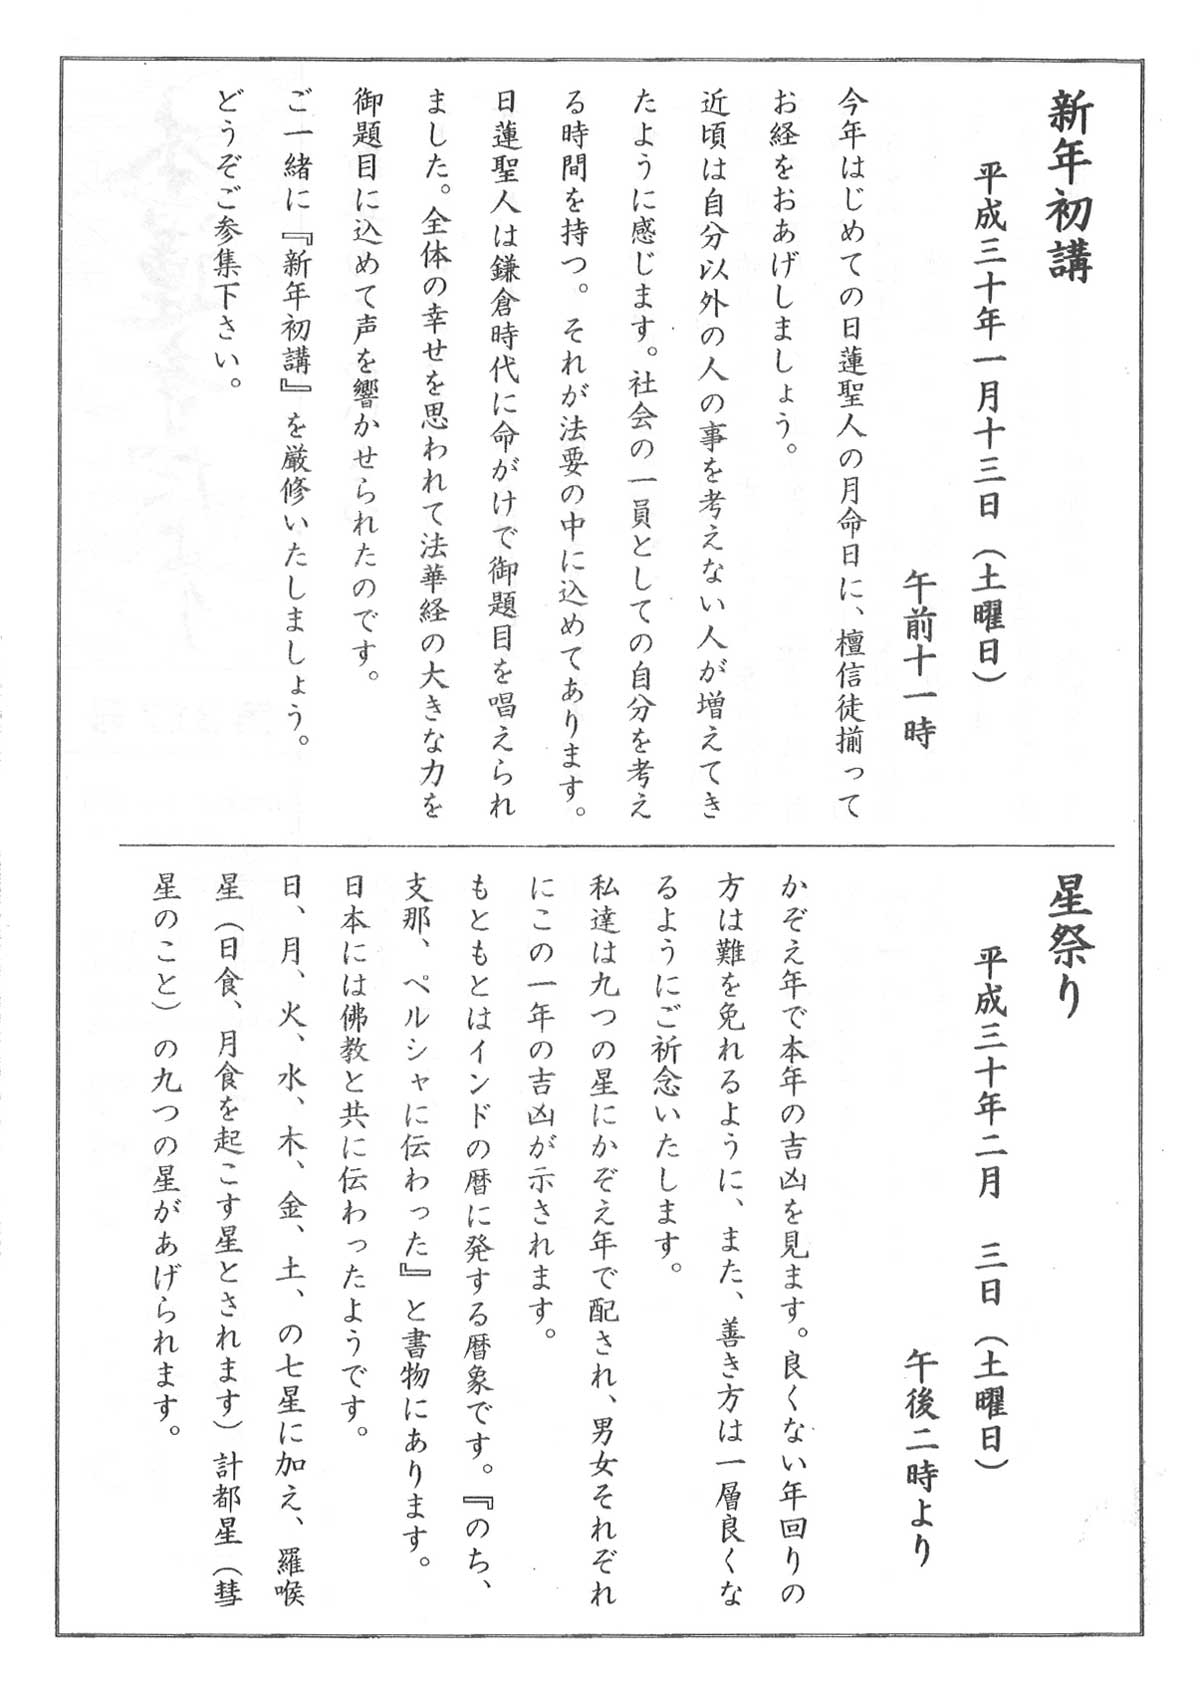 新年初講
平成三十年一月十三日（土曜日）
午前十一時
今年はじめての日蓮聖人の月命日に、檀信徒揃って
お経をおあげしましょう。
近頃は自分以外の人の事を考えない人が増えてき
たように感じます。社会の一員としての自分を考え
る時間を持つ。それが法要の中に込めてあります。
日蓮聖人は鎌倉時代に命がけで御題目を唱えられ
ました。全体の幸せを思われて法華経の大きな力を
御題目に込めて声を響かせられたのです。
ご一緒に『新年初講』を厳修いたしましょう。
どうぞご参集下さい。
星祭り
平成三十年二月　三日（土曜日）
午後二時より
かぞえ年で本年の吉凶を見ます。良くない年回りの
方は難を免れるように、また、善き方は一層良くな
るようにご祈念いたします。
私達は九つの星にかぞえ年で配され、男女それぞれ
にこの一年の吉凶が示されます。
もともとはインドの暦に発する暦象です。『のち、
支那、ペルシャに伝わった』と書物にあります。
日本には佛教と共に伝わったようです。
日、月、火、水、木、金、土、の七星に加え、羅喉
星（日食、月食を起こす星とされます）計都星（彗
星のこと）の九つの星があげられます。